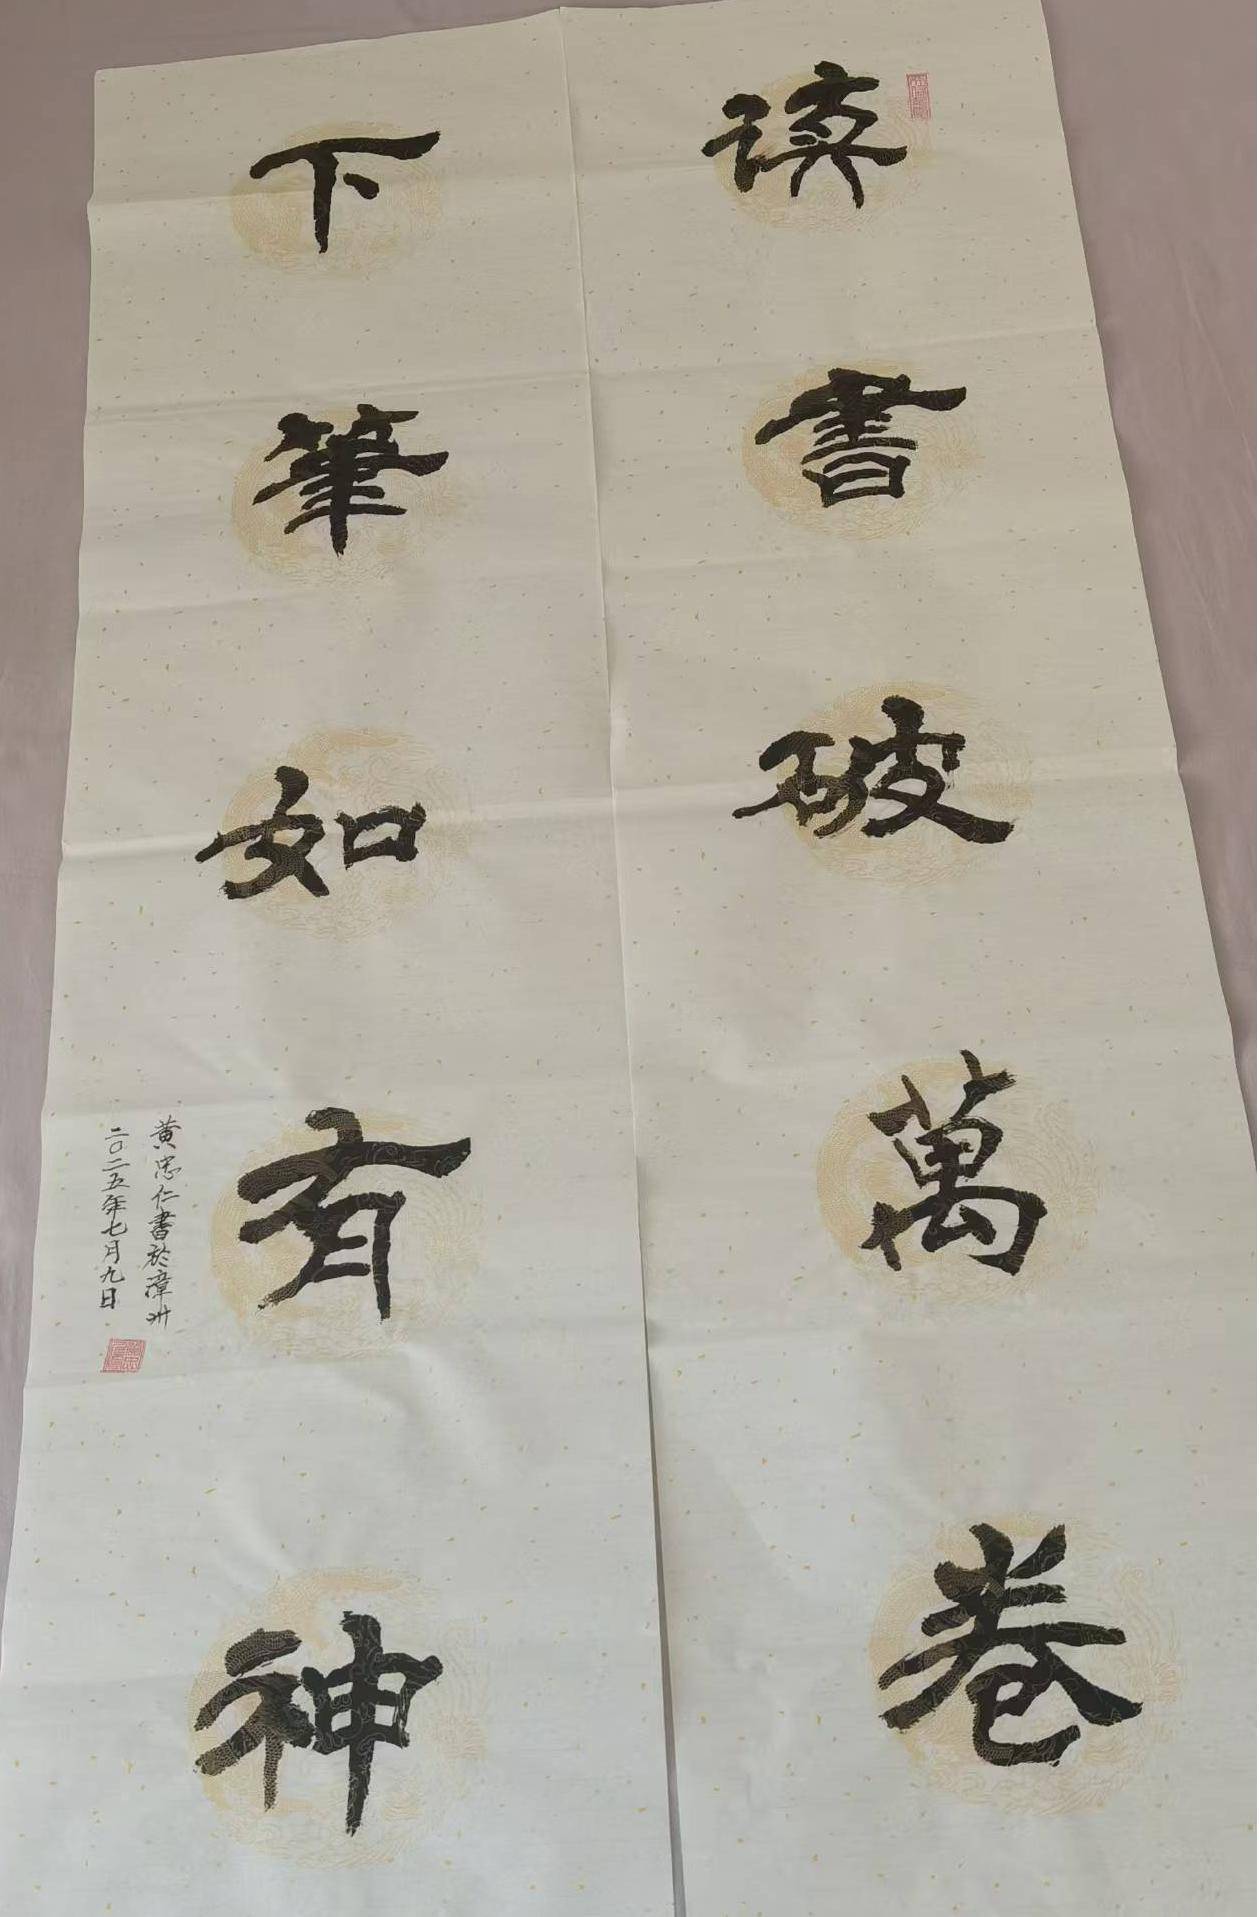 读书破萬卷
下筆如有神
黄忠仁書於漳州
二〇二五年七月九日